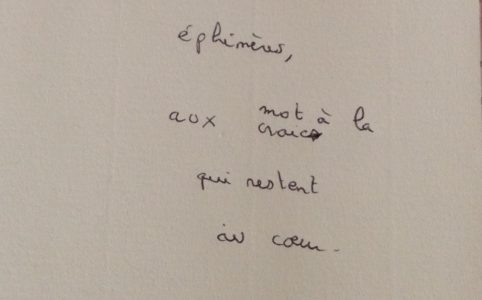 éphémères,
aux mot à la
craie
qui restent
au cœur.